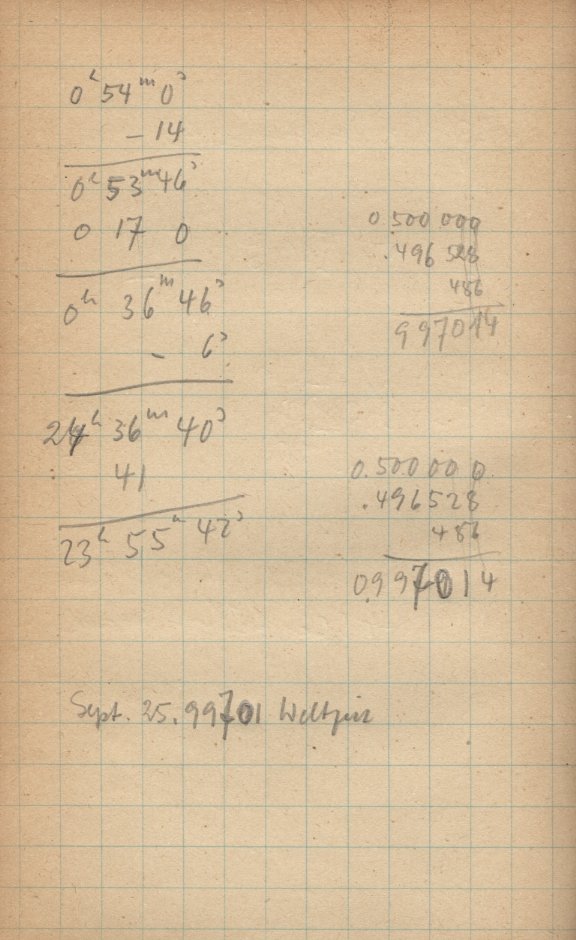 0ʰ 54ᵐ 0ˢ
– 14
0ʰ 53ᵐ 46ˢ
0 17 0
0ʰ 36ᵐ 46ˢ
– 6ˢ
24ʰ 36ᵐ 40ˢ
41
23ʰ 55ᵐ 42ˢ
0 500 000
.496 528
486
997014
0.500 00 0
.496528
486
0.997014
Sept. 25.99701 Weltzeit